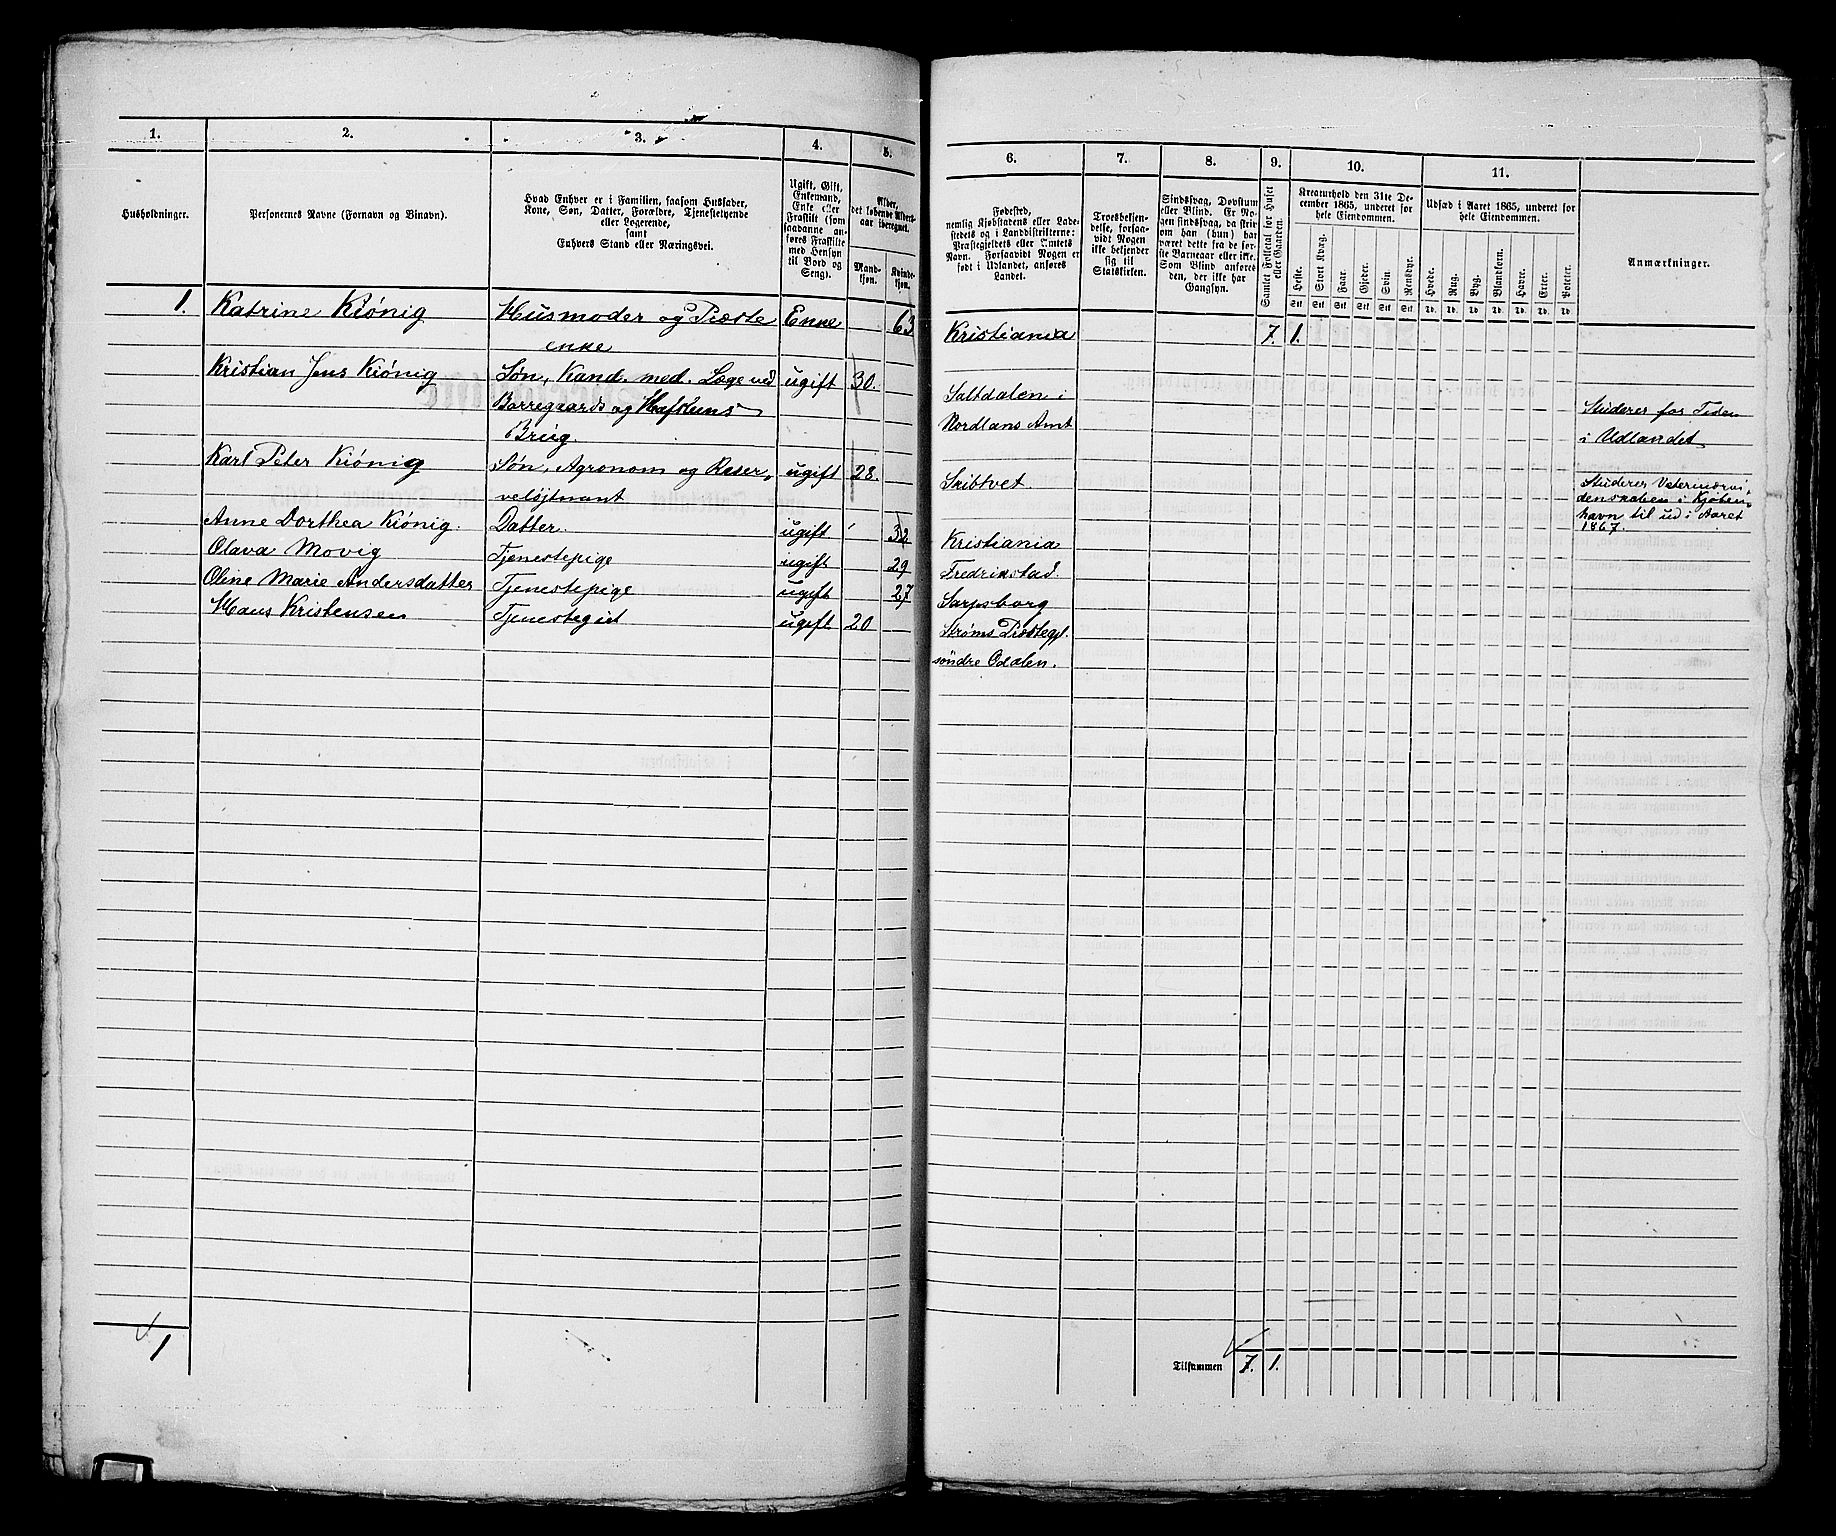 1.
2.
3.
4.
5.
Husholdninger.
Personernes Navne (Fornavn og Binavn).
Hvad Enhver er i Familien, saasom Husfader,
Kone, Søn, Datter, Forældre, Tjenestetyende
eller Logerende,
samt
Enhvers Stand eller Næringsvei.
Ugift, Gift,
Enkemand,
Enke eller
Fraskilt (som
saadanne an-
føres Fraskilte
med Hensyn
til Bord og
Seng).
Alder,
det løbende Alders-
aar iberegnet.
Mand-
kjøn.
Kvinde-
kjøn.
1. Katrine Kiönig Husmoder og Præste Enke 63
enke
Kristian Jens Kiönig Søn, Kand. med. Læge ved ugift 30.
Borregaards og Hafslunds
Brug.
Karl Peter Kiönig Søn, Agronom og Reser- ugift 28.
veløjtnant
Anne Dorthea Kiönig. Datter. ugift 32
Olava Movig Tjenestepige ugift 29
Oline Marie Andersdatter Tjenestepige ugift 27
Hans Kristensen Tjenestegut ugift 20
1
6.
7.
8.
9.
10.
11.
Fødested,
nemlig Kjøbstadens eller Lade-
stedets og i Landdistrikterne:
Præstegjeldets eller Amtets
Navn. Forsaavidt Nogen er
født i Udlandet, anføres
Landet.
Troesbekjen-
delse, forsaa-
vidt Nogen
ikke bekjender
sig til
Statskirken.
Sindssvag, Døvstum
eller Blind. Er No-
gen sindssvag, da skriv
om han (hun) har
været dette fra de før-
ste Barneaar eller ikke.
Som Blind anføres
den, der ikke har
Gangsyn.
Samlet Folketal for Huset
eller Gaarden.
Kreaturhold den 31te De-
cember 1865, underet for
hele Eiendommen.
Heste.
Stort Kvæg.
Faar.
Gjeder.
Svin.
Rensdyr.
Stk. Stk. Stk. Stk. Stk. Stk.
Udsæd i Aaret 1865, underet for
hele Eiendommen.
Hvede.
Rug.
Byg.
Blandkorn.
Havre.
Erter.
Poteter.
Td. Td. Td. Td. Td. Td. Td.
Anmærkninger.
Kristiania 7. 1.
Saltdalen i
Nordlans Amt
Studerer for Tiden
i Udlandet
Skibtvet
Studerer Veterinærvi-
denskaben i Kjøben-
havn til ud i Aaret
1867.
Kristiania
Fredrikstad.
Sarpsborg
Strøms Præstegjl.
söndre Odalen.
Tilsammen 7. 1.